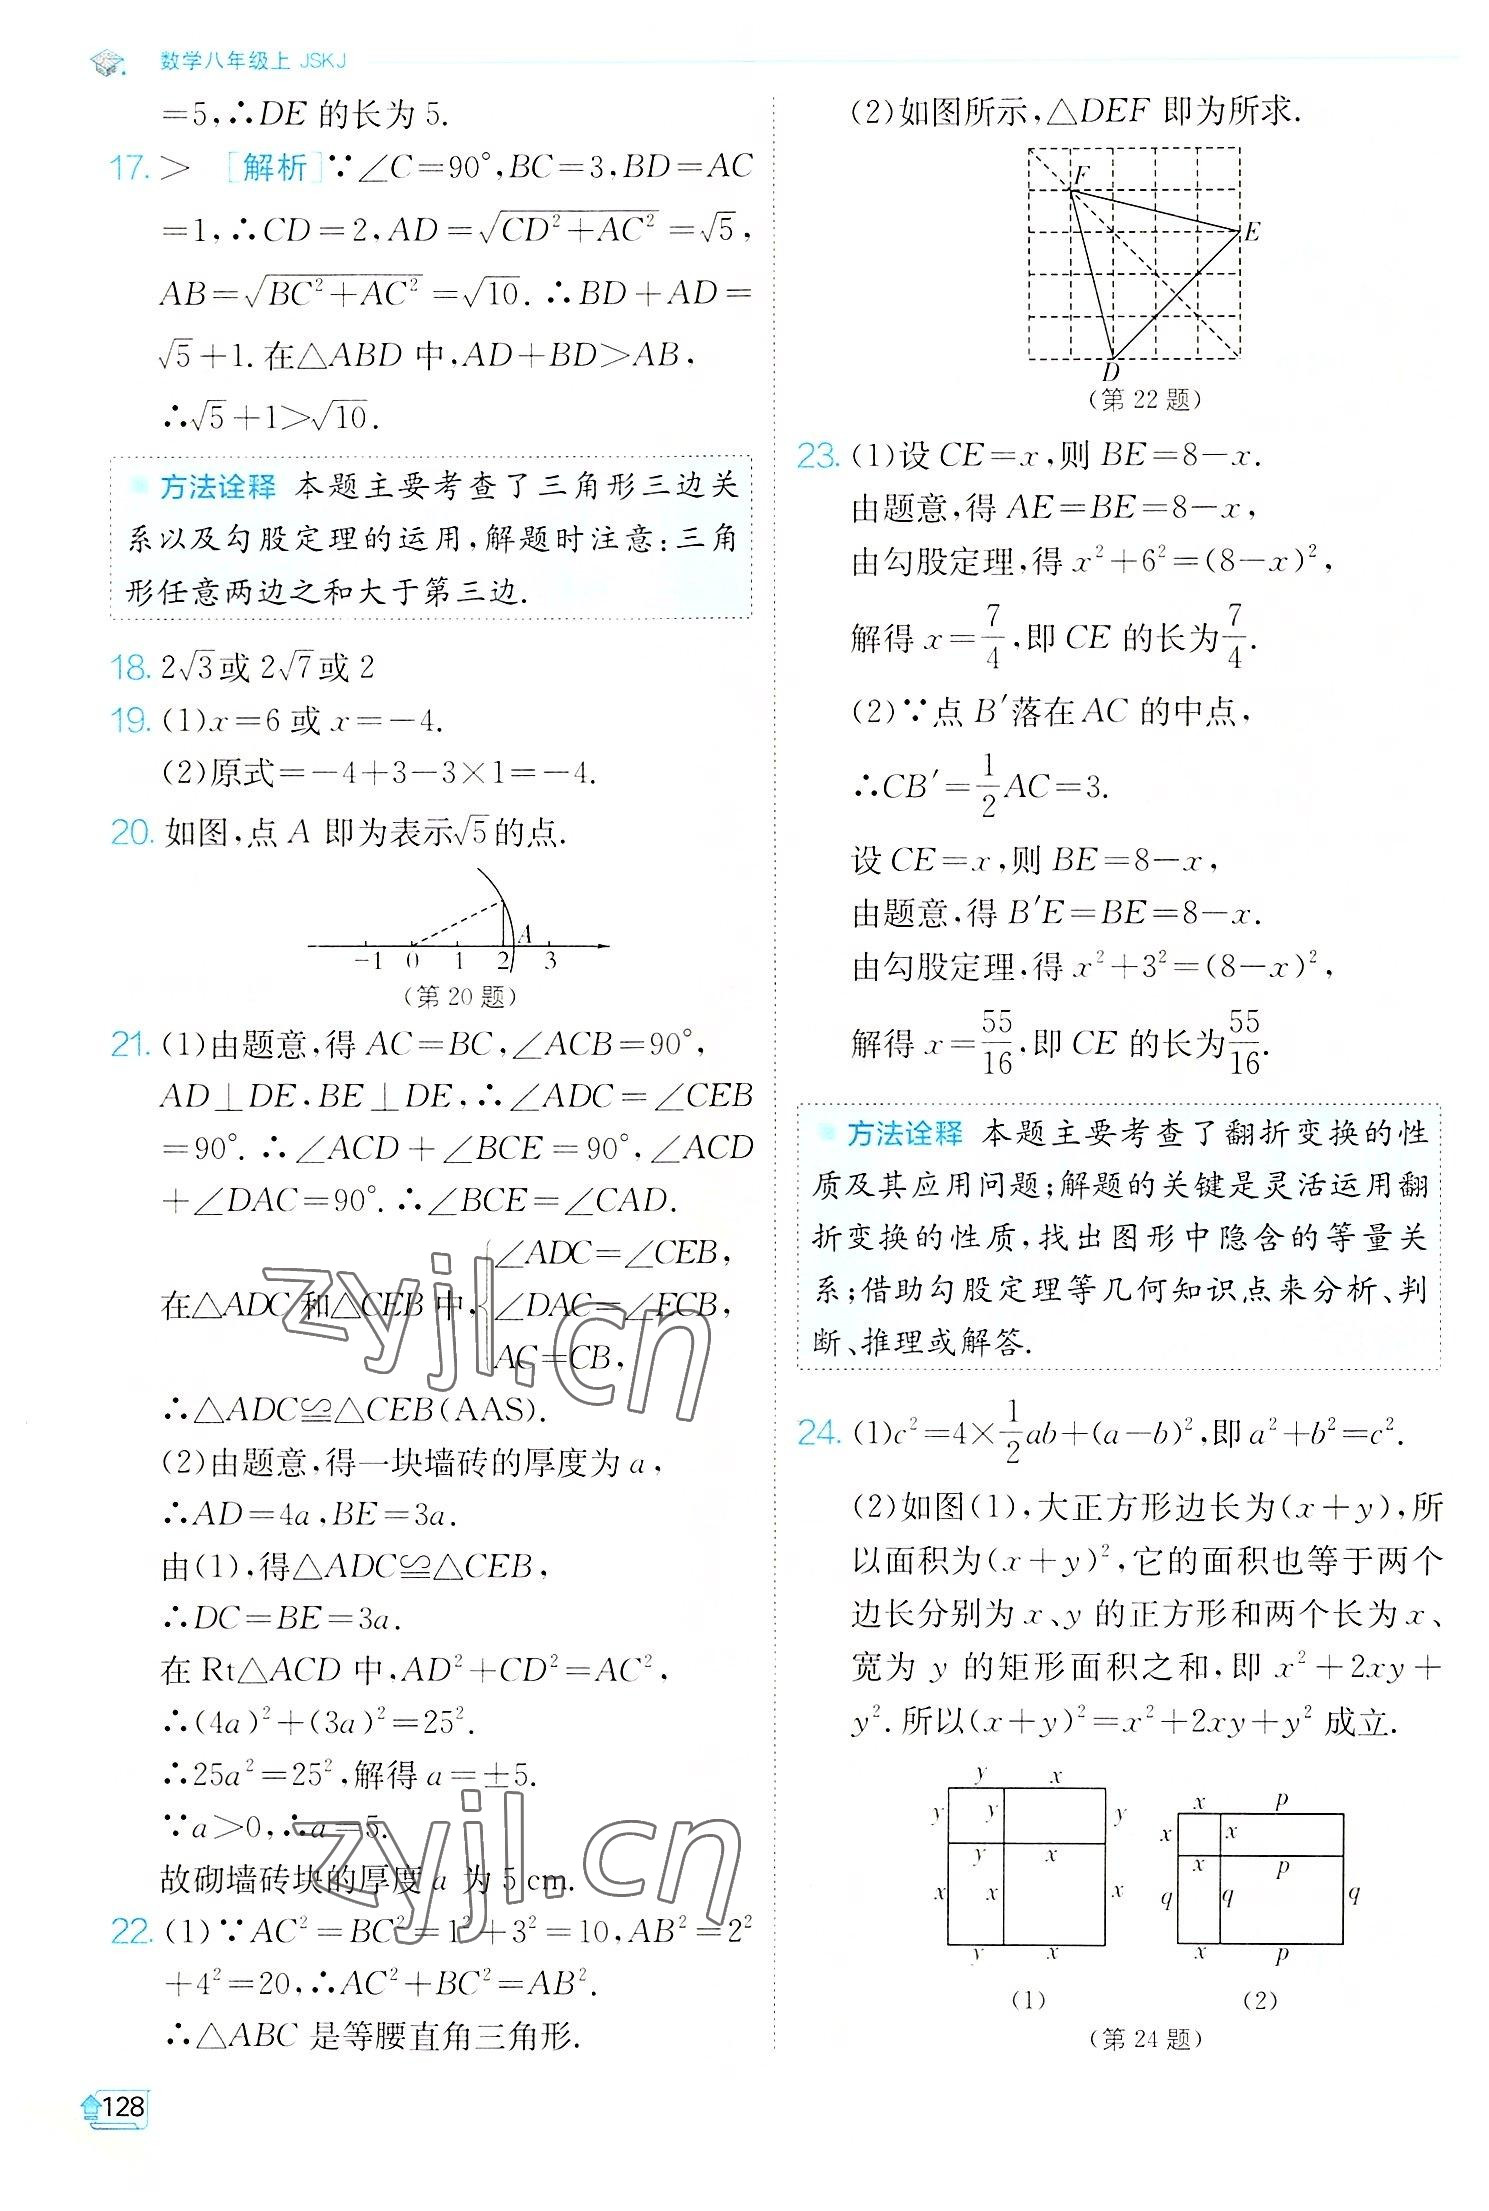 数学八年级上 JSKJ
=5,∴DE 的长为 5.
17. > [解析]∵∠C=90°,BC=3,BD=AC
=1,∴CD=2,AD=√(CD²+AC²)=√5,
AB=√(BC²+AC²)=√10.∴BD+AD=
√5+1.在△ABD 中,AD+BD>AB,
∴√5+1>√10.
方法诠释 本题主要考查了三角形三边关
系以及勾股定理的运用,解题时注意:三角
形任意两边之和大于第三边.
18. 2√3或 2√7或 2
19. (1)x=6 或 x=-4.
(2)原式=-4+3-3×1=-4.
20. 如图,点 A 即为表示√5的点.
A
-1 0 1 2 3
(第 20 题)
21. (1)由题意,得 AC=BC,∠ACB=90°,
AD⊥DE,BE⊥DE,∴∠ADC=∠CEB
=90°.∴∠ACD+∠BCE=90°,∠ACD
+∠DAC=90°.∴∠BCE=∠CAD.
在△ADC 和△CEB 中,{∠ADC=∠CEB,
∠DAC=∠ECB,
AC=CB,
∴△ADC≌△CEB(AAS).
(2)由题意,得一块墙砖的厚度为 a,
∴AD=4a,BE=3a.
由(1),得△ADC≌△CEB,
∴DC=BE=3a.
在 Rt△ACD 中,AD²+CD²=AC²,
∴(4a)²+(3a)²=25².
∴25a²=25²,解得 a=±5.
∵a>0,∴a=5.
故砌墙砖块的厚度 a 为 5 cm.
22. (1)∵AC²=BC²=1²+3²=10,AB²=2²
+4²=20,∴AC²+BC²=AB².
∴△ABC 是等腰直角三角形.
zyjl.cn
zyjl.cn
128
(2)如图所示,△DEF 即为所求.
F
E
D
(第 22 题)
23. (1)设 CE=x,则 BE=8-x.
由题意,得 AE=BE=8-x,
由勾股定理,得 x²+6²=(8-x)²,
解得 x=7/4,即 CE 的长为7/4.
(2)∵点 B′落在 AC 的中点,
∴CB′=1/2AC=3.
设 CE=x,则 BE=8-x,
由题意,得 B′E=BE=8-x.
由勾股定理,得 x²+3²=(8-x)²,
解得 x=55/16,即 CE 的长为55/16.
方法诠释 本题主要考查了翻折变换的性
质及其应用问题;解题的关键是灵活运用翻
折变换的性质,找出图形中隐含的等量关
系;借助勾股定理等几何知识点来分析、判
断、推理或解答.
24. (1)c²=4×1/2ab+(a-b)²,即 a²+b²=c².
(2)如图(1),大正方形边长为(x+y),所
以面积为(x+y)²,它的面积也等于两个
边长分别为 x、y 的正方形和两个长为 x、
宽为 y 的矩形面积之和,即 x²+2xy+
y².所以(x+y)²=x²+2xy+y² 成立.
y x
y y y
y x
x x x
y x
(1)
x p
x x
x p
q q q
x p
(2)
(第 24 题)